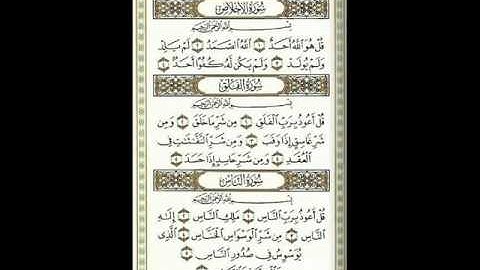 سُورَةُ الإِخْلَاصِ
بِسْمِ اللَّهِ الرَّحْمَٰنِ الرَّحِيمِ
قُلْ هُوَ اللَّهُ أَحَدٌ ١ اللَّهُ الصَّمَدُ ٢ لَمْ يَلِدْ
وَلَمْ يُولَدْ ٣ وَلَمْ يَكُن لَّهُ كُفُوًا أَحَدٌ ٤
سُورَةُ الفَلَقِ
بِسْمِ اللَّهِ الرَّحْمَٰنِ الرَّحِيمِ
قُلْ أَعُوذُ بِرَبِّ الْفَلَقِ ١ مِن شَرِّ مَا خَلَقَ ٢ وَمِن
شَرِّ غَاسِقٍ إِذَا وَقَبَ ٣ وَمِن شَرِّ النَّفَّٰثَٰتِ فِي
الْعُقَدِ ٤ وَمِن شَرِّ حَاسِدٍ إِذَا حَسَدَ ٥
سُورَةُ النَّاسِ
بِسْمِ اللَّهِ الرَّحْمَٰنِ الرَّحِيمِ
قُلْ أَعُوذُ بِرَبِّ النَّاسِ ١ مَلِكِ النَّاسِ ٢ إِلَٰهِ
النَّاسِ ٣ مِن شَرِّ الْوَسْوَاسِ الْخَنَّاسِ ٤ الَّذِي
يُوَسْوِسُ فِي صُدُورِ النَّاسِ ٥